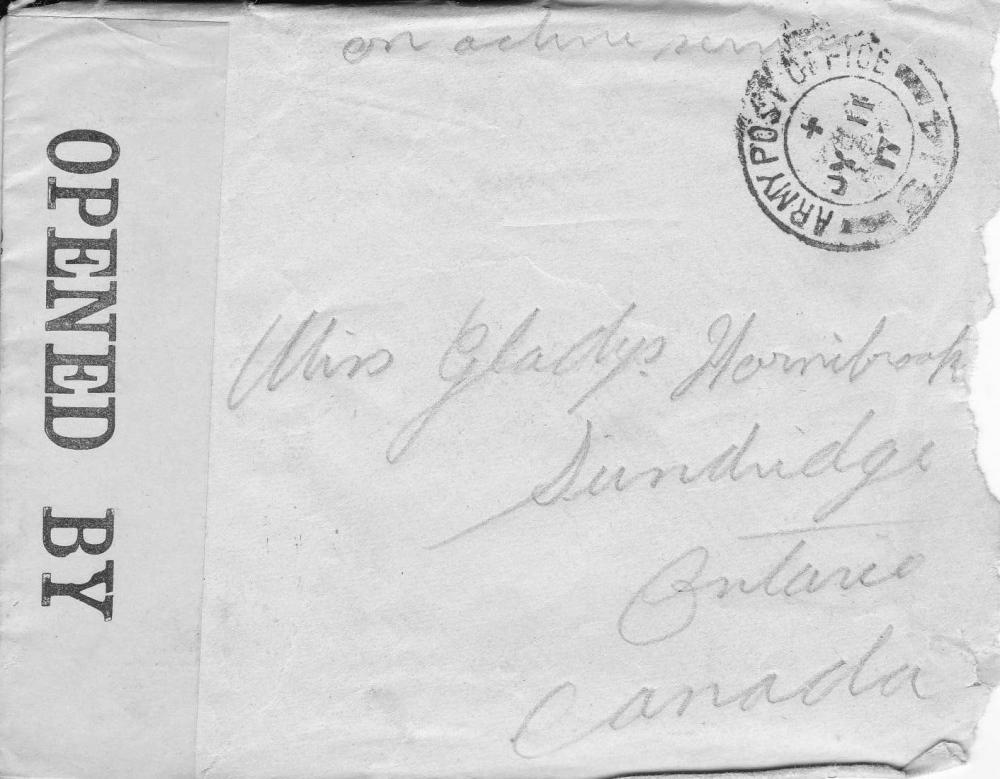 on active service
OPENED BY
ARMY POST OFFICE
Miss Gladys Hornibrook
Sundridge
Ontario
Canada